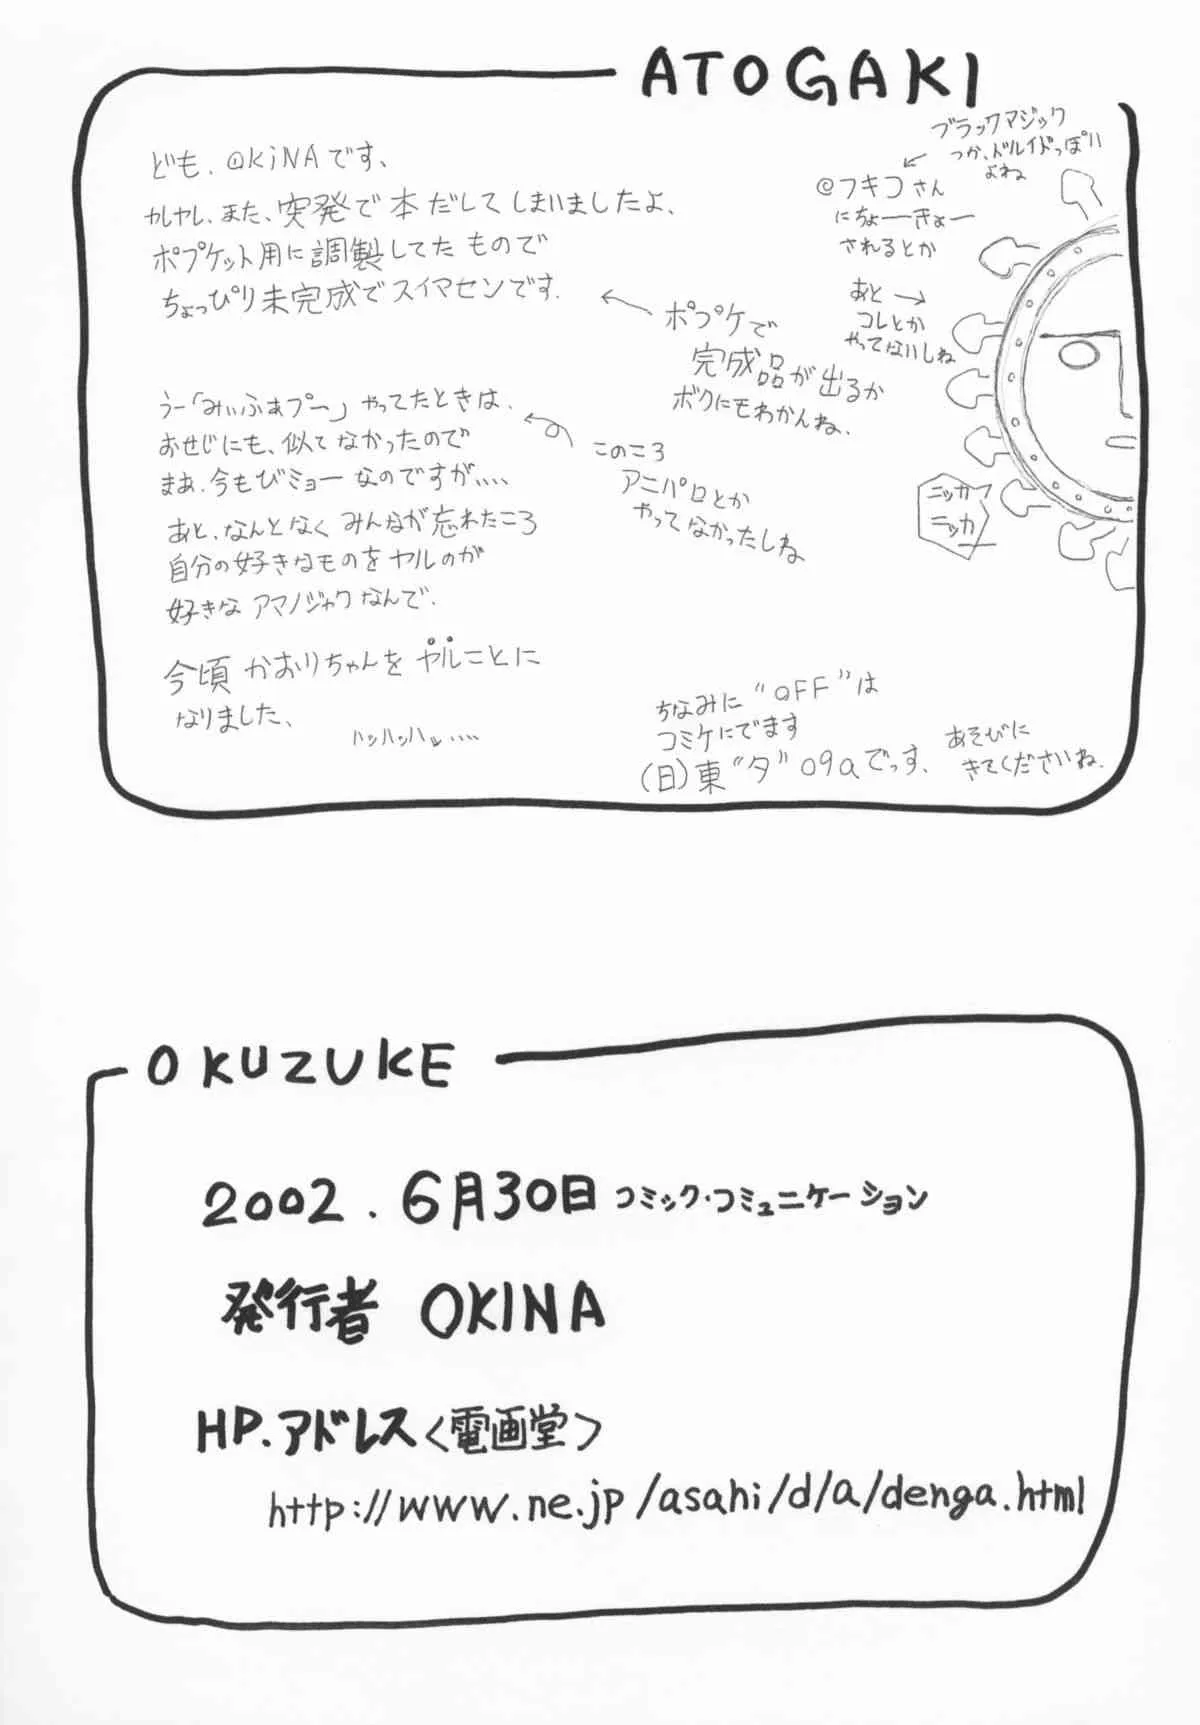 ATOGAKI
ども、OKiNAです、
また、突発で本だしてしまいましたよ、
ポプケット用に調製してたもので
ちょっぴり未完成でスイマセンです.
ポプケで
完成品が出るか
ボクにもわかんね、
ブラックマジック
つか、ドルイドっぽい
よね
@フキコさん
にちょーきょー
されるとか
あと
コレとか
やってないしね
うー「みぃふぁプー」やってたときは、
おせじにも、似てなかったので
まあ、今もびミョーなのですが、、、、
このころ
アニパロとか
やってなかったしね
あと、なんとなくみんなが忘れたころ
自分の好きなものをヤルのが
好きなアマノジャクなんで、
ニッカ
ニッカー
今頃かおりちゃんをヤルことに
なりました、
ハッハッハッ....
ちなみに“OFF”は
コミケにでます
(日)東“タ”09aでっす、
あそびに
きてくださいね.
OKUZUKE
2002.6月30日コミック・コミュニケーション
発行者 OKINA
HP.アドレス<電画堂>
http://www.ne.jp/asahi/d/a/denga.html